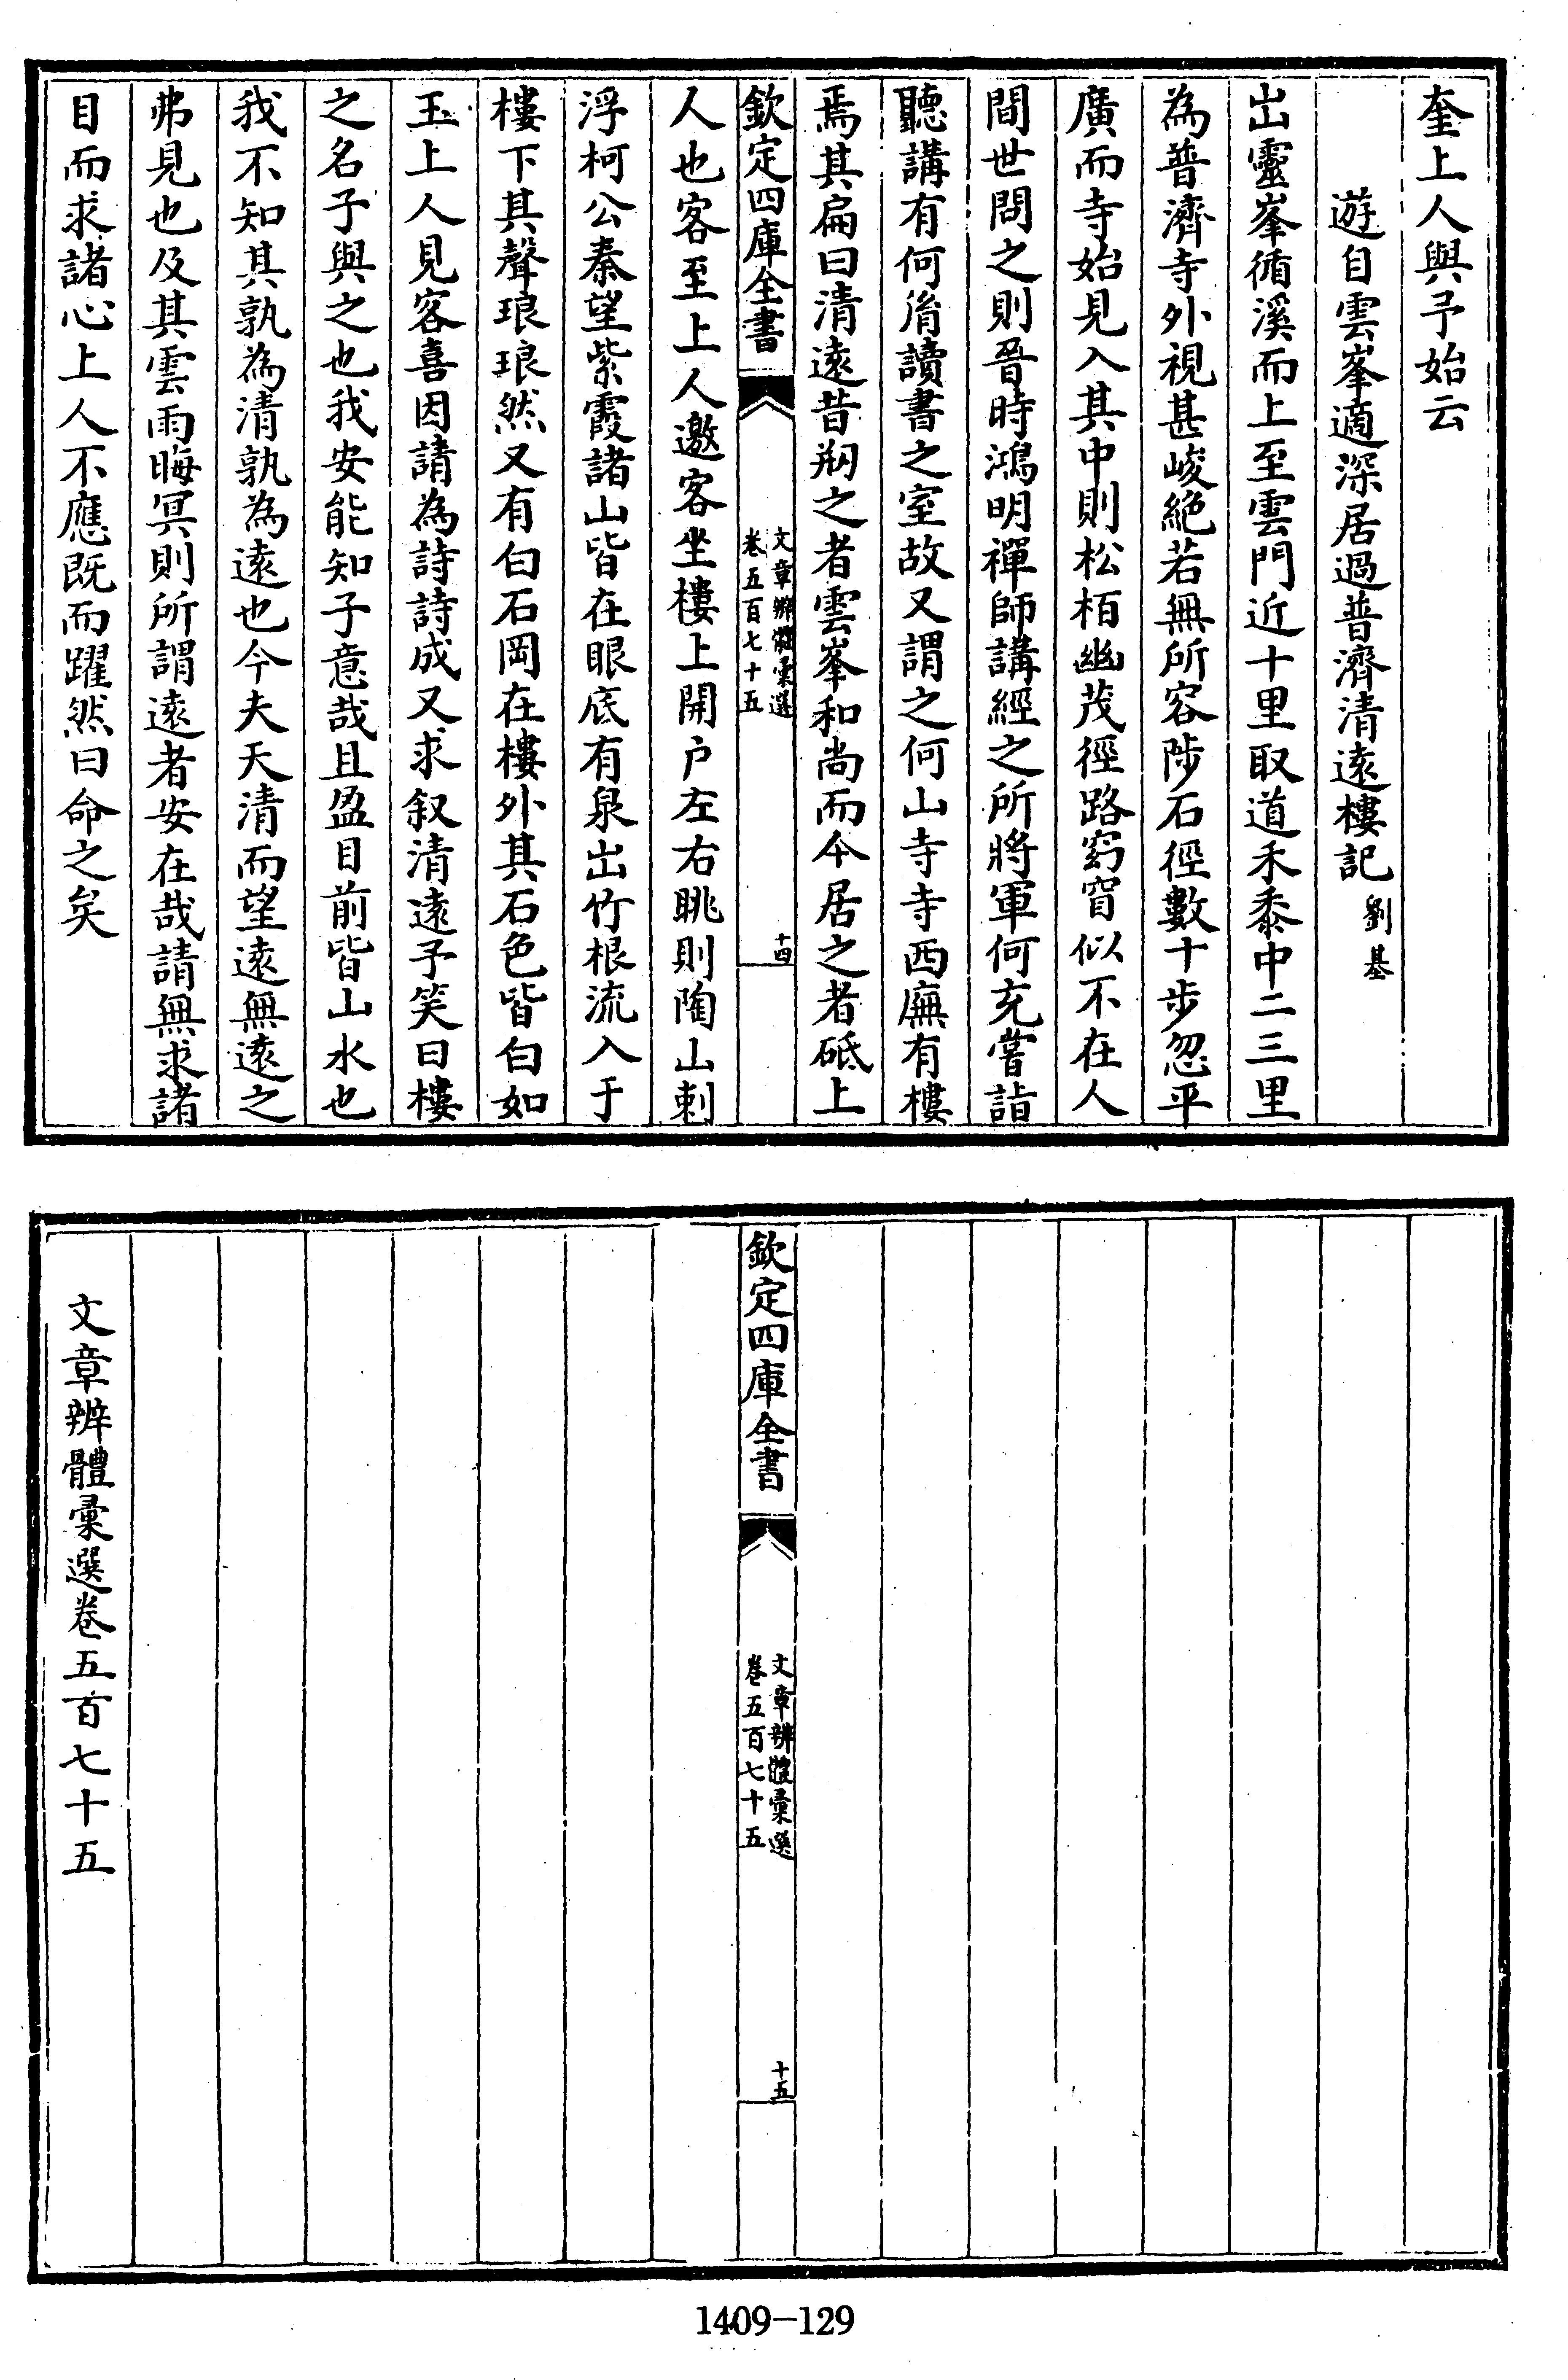 奎上人與予始云
遊自雲峯適深居過普濟清遠樓記 劉基
出靈峯循溪而上至雲門近十里取道禾黍中二三里
為普濟寺外視甚峻絕若無所容陟石徑數十步忽平
廣而寺始見入其中則松栢幽茂徑路窈窅似不在人
間世問之則晉時鴻明禪師講經之所將軍何充嘗詣
聽講有何胤讀書之室故又謂之何山寺寺西廡有樓
焉其扁曰清遠昔剏之者雲峯和尚而今居之者砥上
欽定四庫全書
文章辨體彙選
卷五百七十五
十四
人也客至上人邀客坐樓上開户左右眺則陶山刺
浮柯公秦望紫霞諸山皆在眼底有泉出竹根流入于
樓下其聲琅琅然又有白石岡在樓外其石色皆白如
玉上人見客喜因請為詩詩成又求叙清遠予笑曰樓
之名子與之也我安能知子意哉且盈目前皆山水也
我不知其孰為清孰為遠也今夫天清而望遠無遠之
弗見也及其雲雨晦冥則所謂遠者安在哉請無求諸
目而求諸心上人不應既而躍然曰命之矣
欽定四庫全書
文章辨體彙選
卷五百七十五
十五
文章辨體彙選卷五百七十五
1409-129